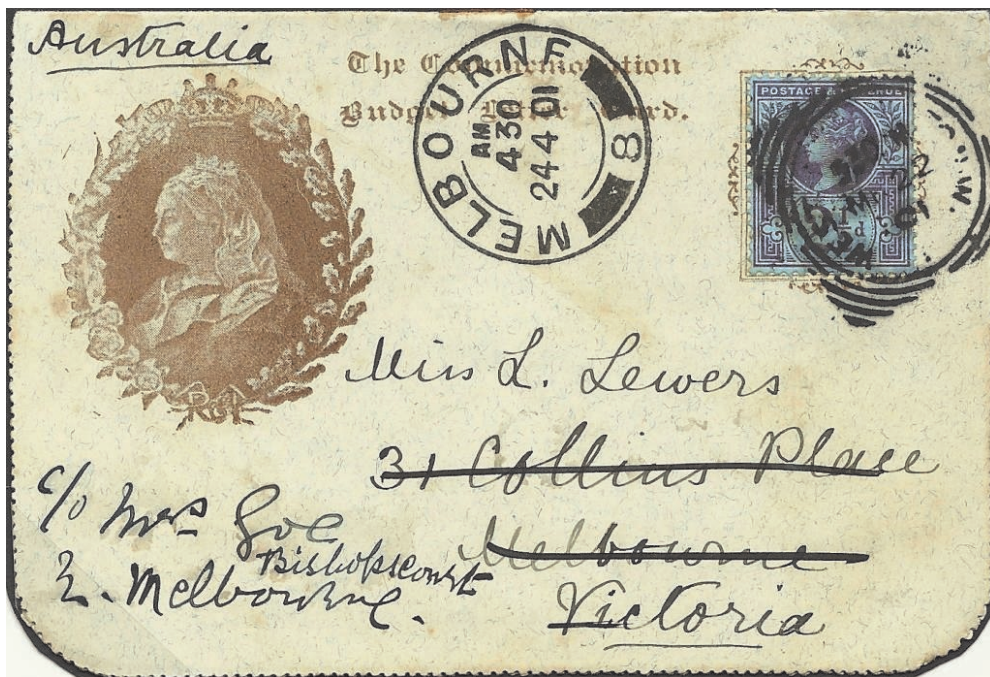 Australia
The Commemoration
Budget Letter Card.
MELBOURNE
8
AM
4 30
24 4 01
POSTAGE & REVENUE
2½d
22
01
W.
R I
Miss L. Lewers
31 Collins Place
Melbourne
Victoria
c/o Mrs Goe
Bishopscourt
E. Melbourne.